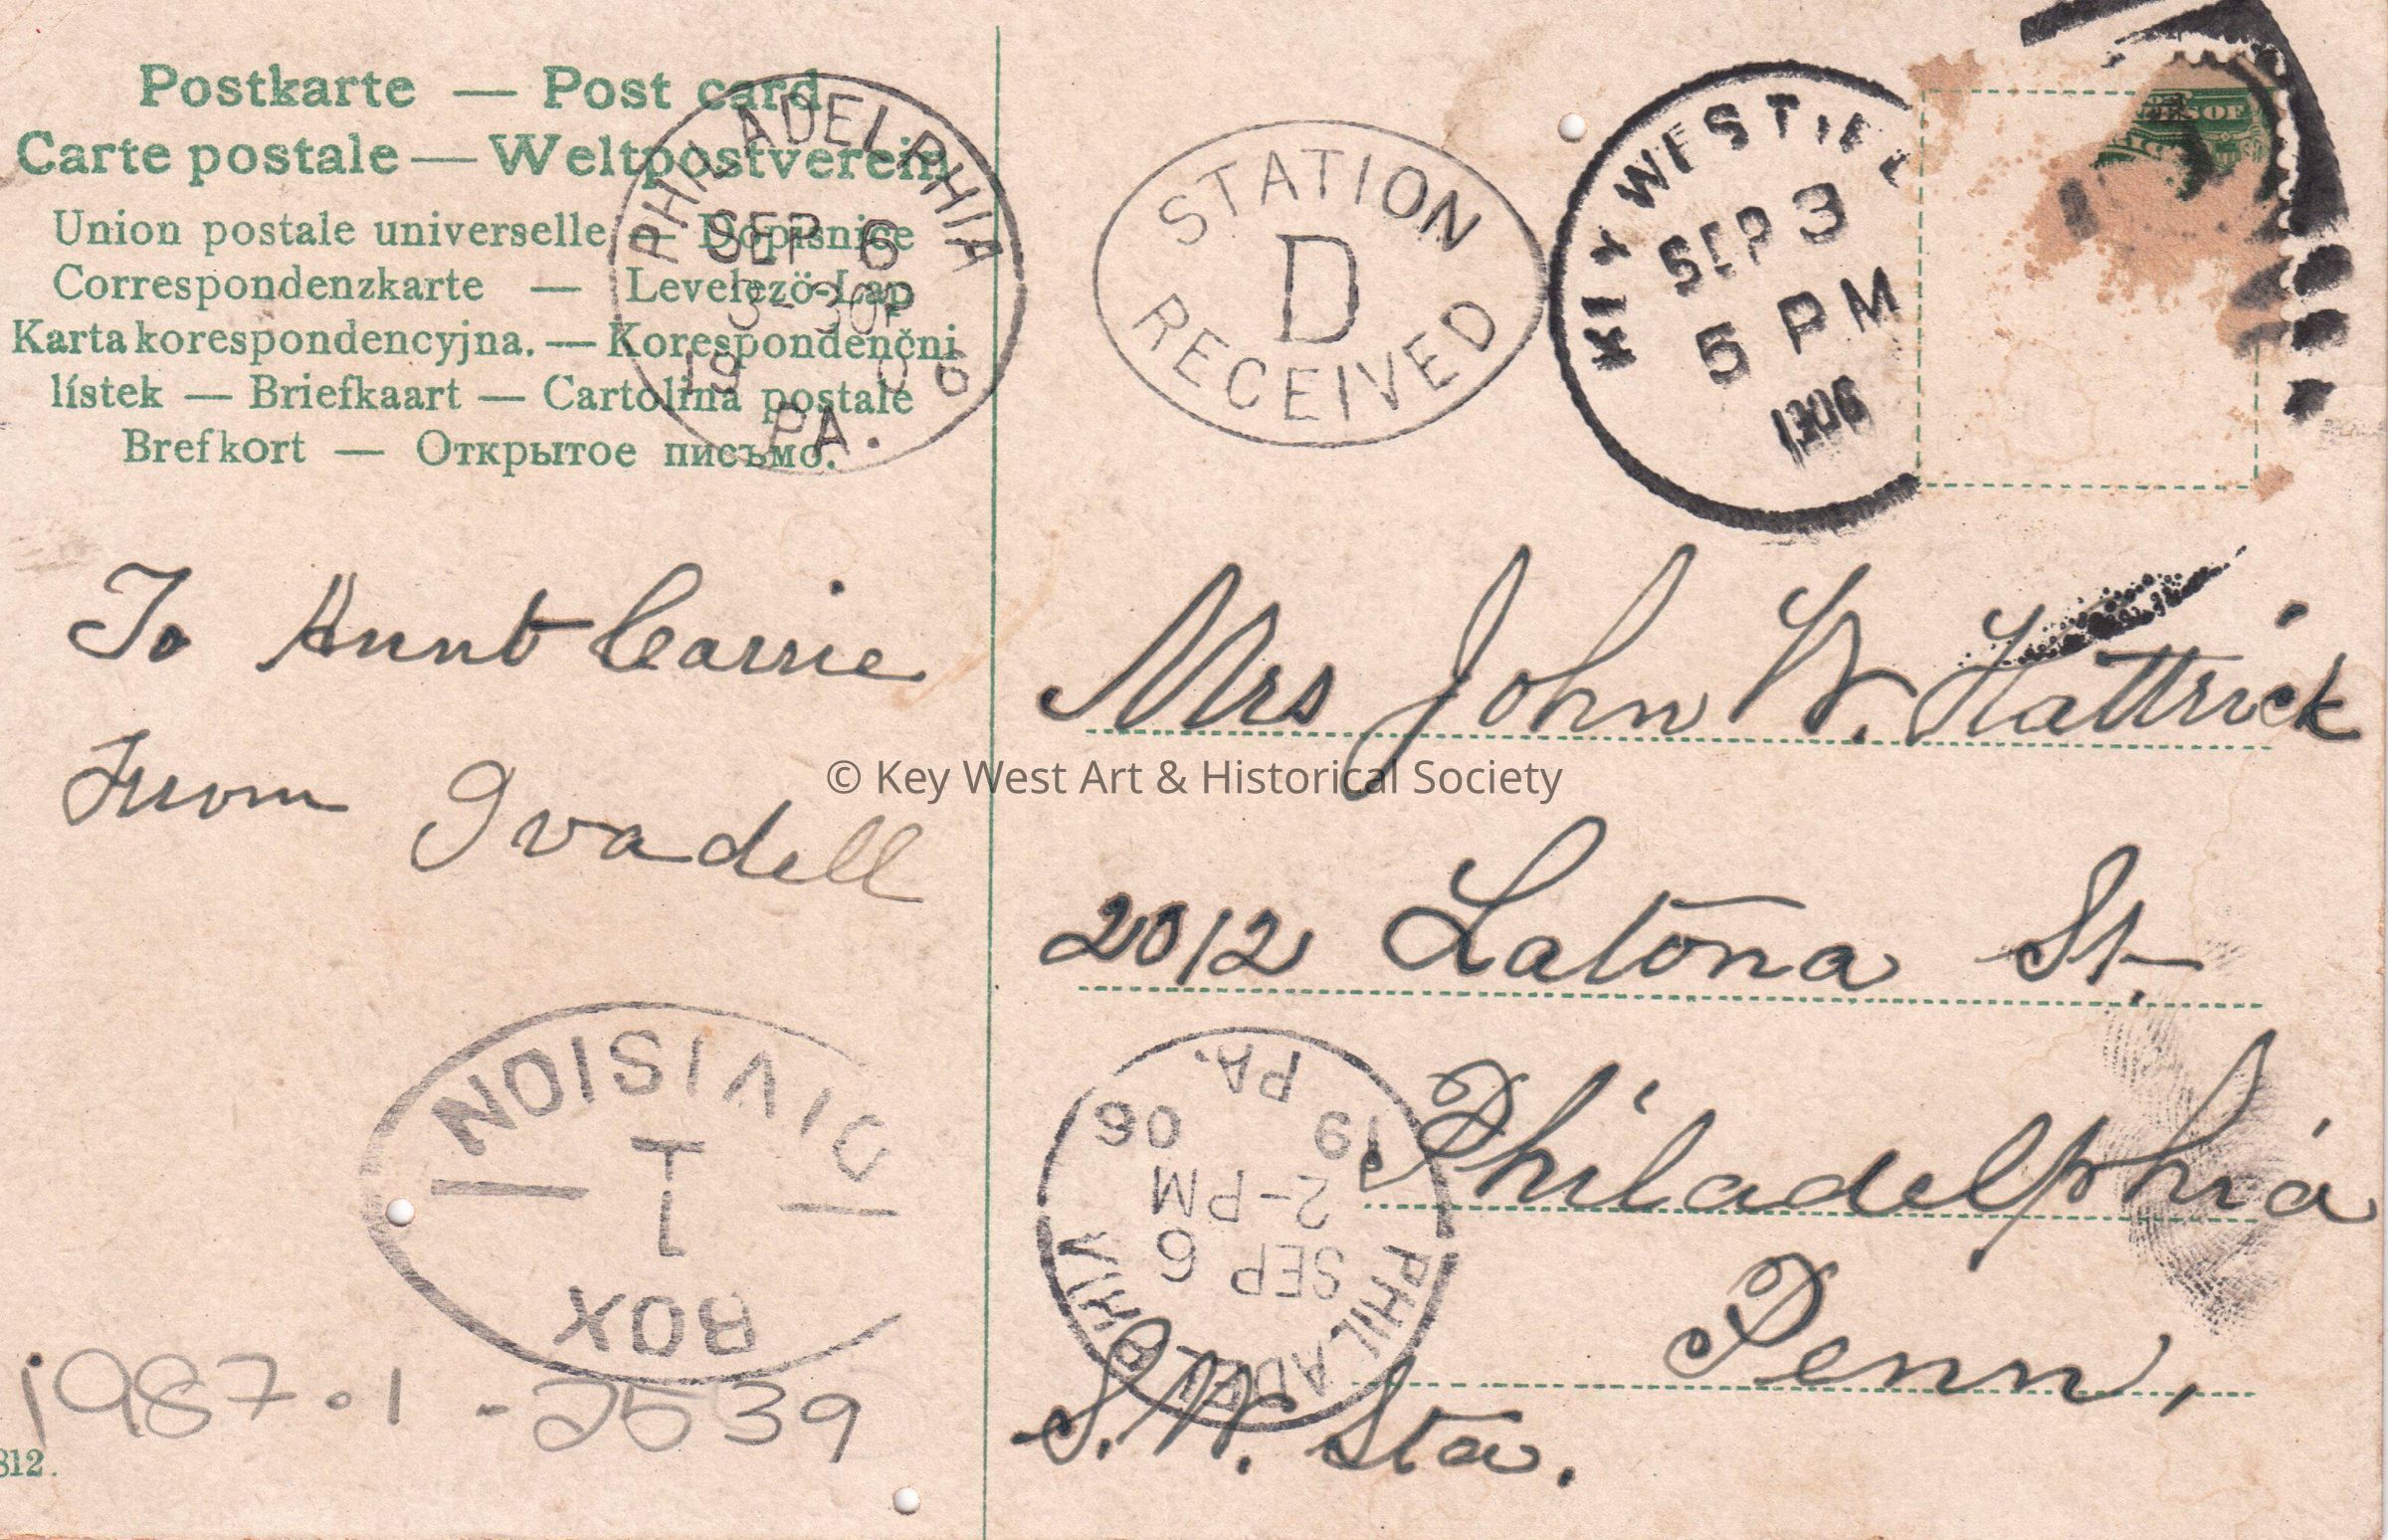 Postkarte — Post card
Carte postale — Weltpostverein
Union postale universelle — Dopisnice
Correspondenzkarte — Levelező-Lap
Karta korespondencyjna. — Korespondenční
lístek — Briefkaart — Cartolina postale
Brefkort — Открытое письмо.
PHILADELPHIA
SEP 6
3-30P
19 06
PA.
STATION
D
RECEIVED
KEY WEST, FLA
SEP 3
5 PM
1906
To Aunt Carrie
From Ivadell
Mrs John W. Hattrick
2012 Latona St.
Philadelphia
Penn,
S. W. Sta.
© Key West Art & Historical Society
DIVISION
1
BOX
PHILADELPHIA
SEP 6
2-PM
19 06
PA.
1987.1-2539
812.